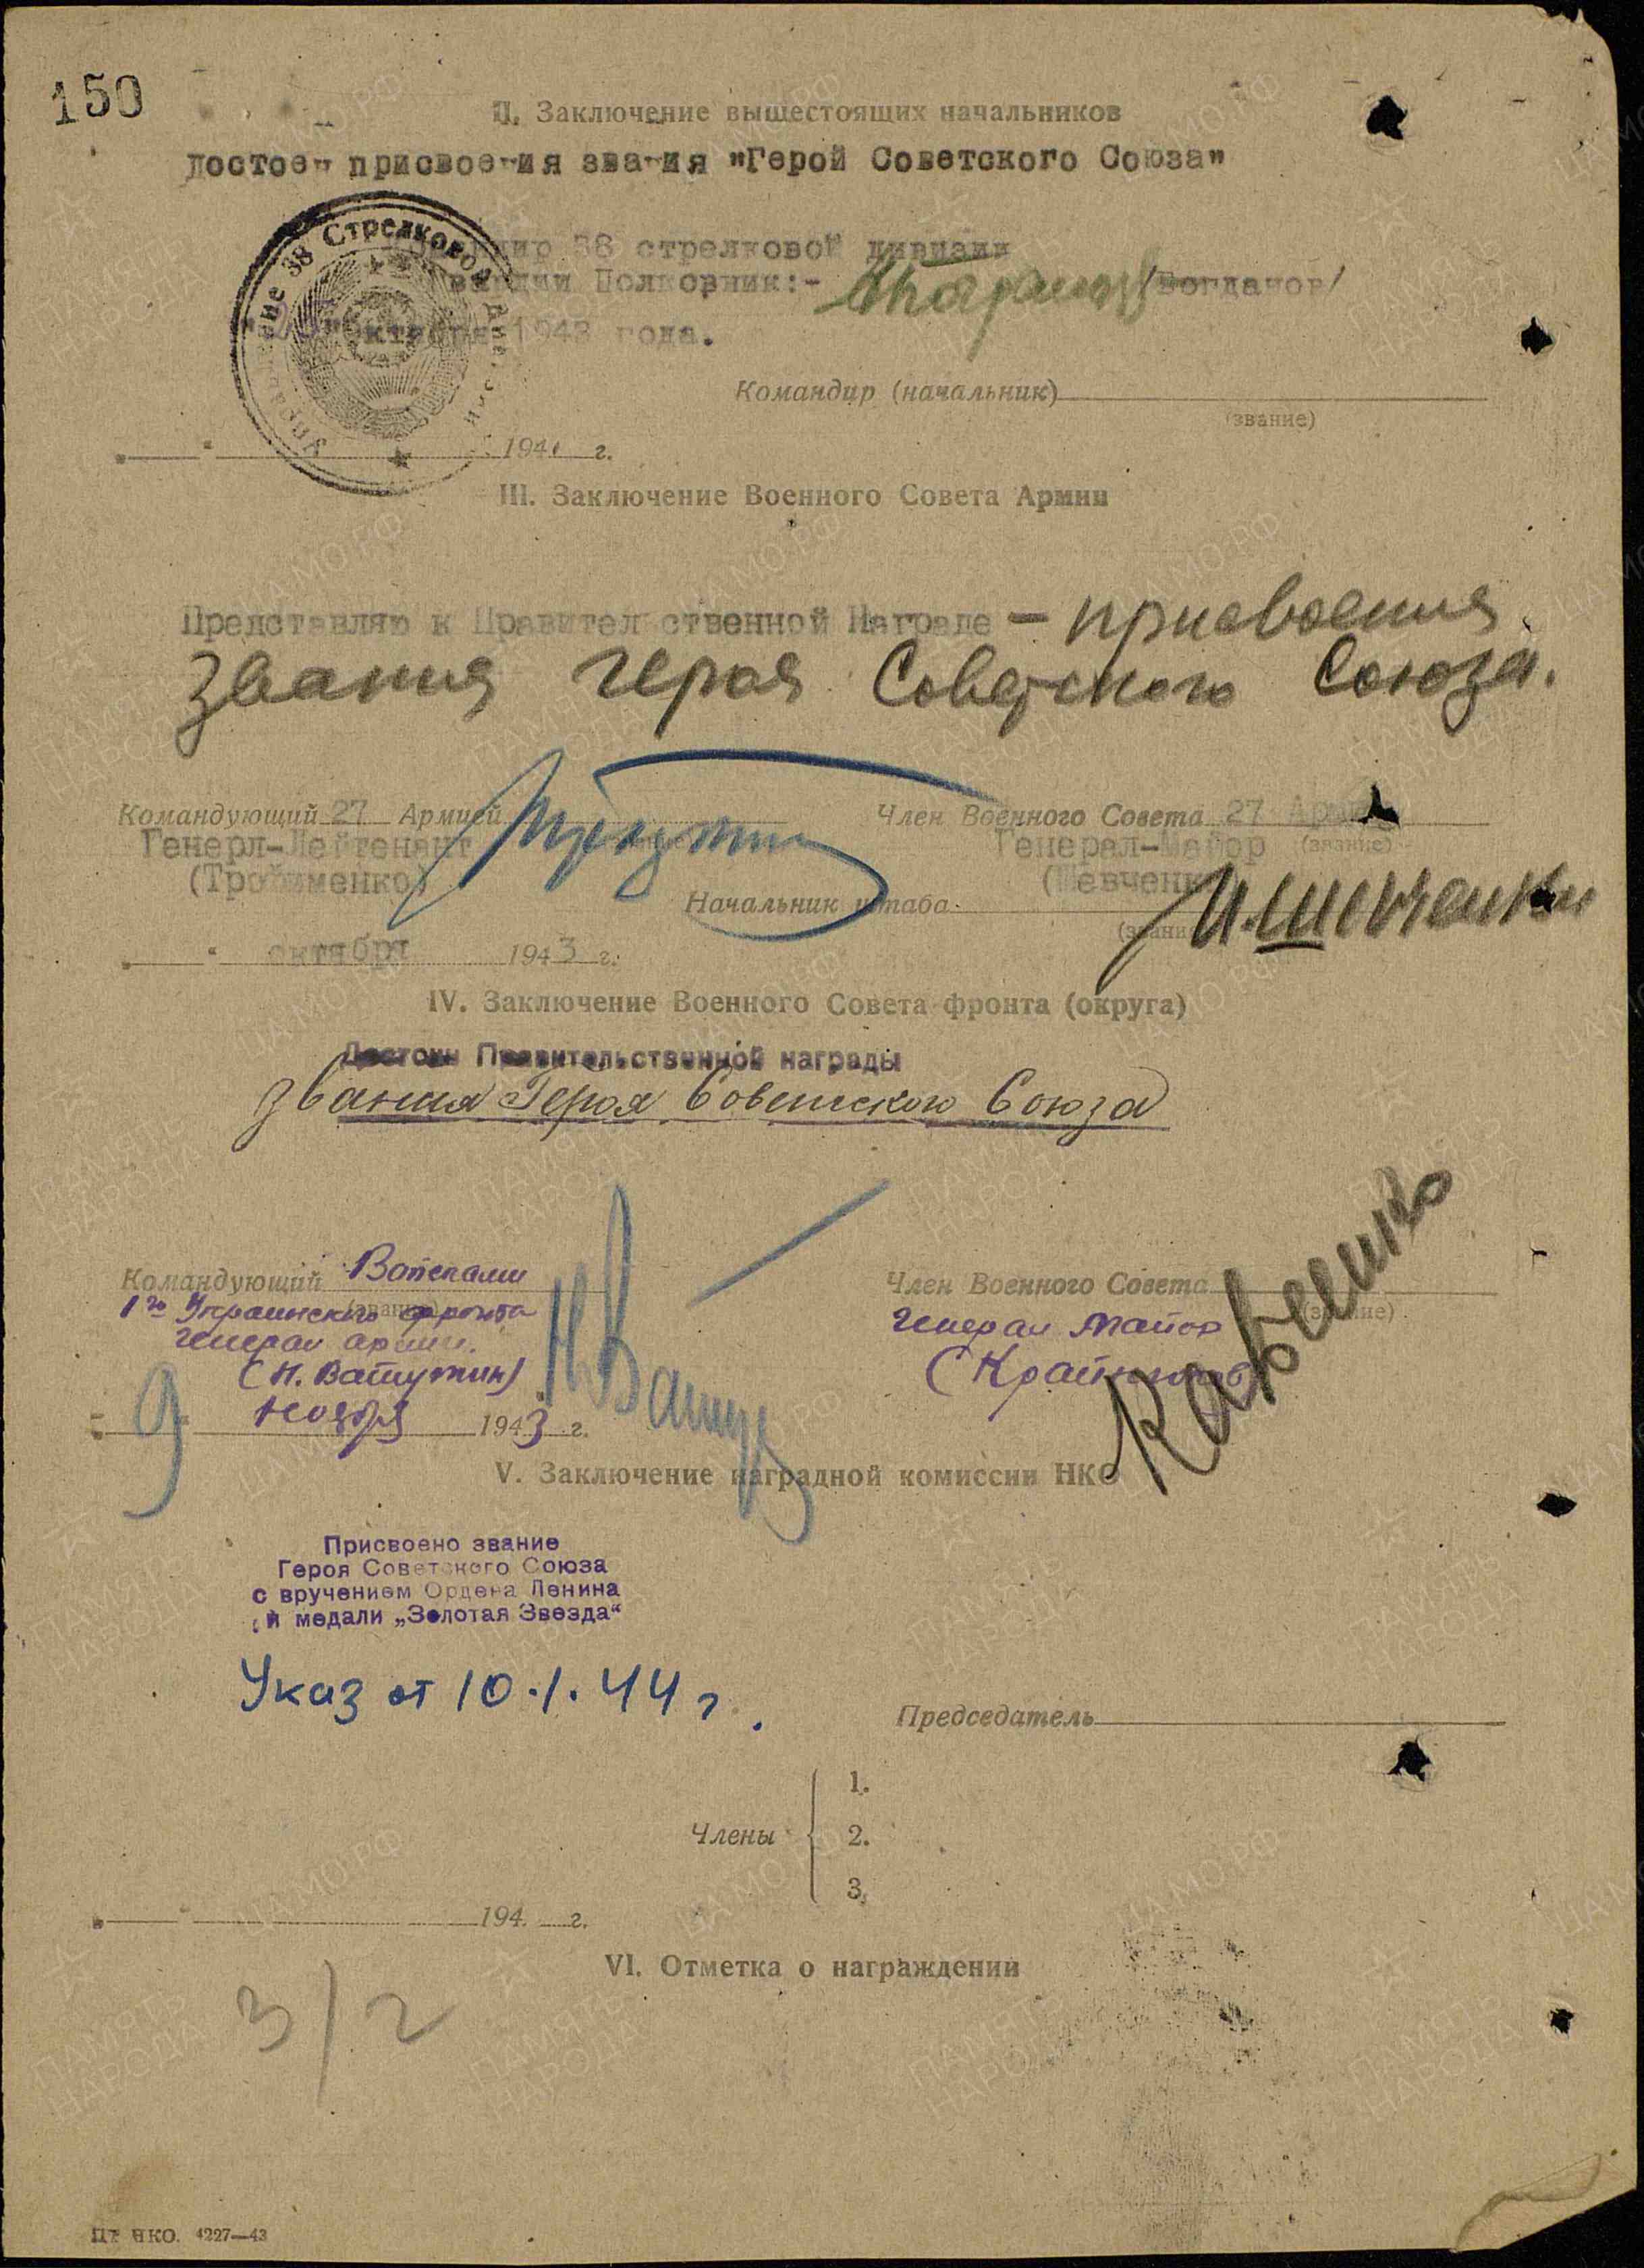 150
II. Заключение вышестоящих начальников
достоен присвоения звания "Герой Советского Союза"
38 стрелковой дивизии
Полковник:- /Богданов/
1943 года.
Управление 38 Стрелковой Дивизии
Командир (начальник)
(звание)
194 г.
III. Заключение Военного Совета Армии
Представляю к Правительственной Награде - присвоения
звания героя Советского Союза.
Командующий 27 Армией
Член Военного Совета 27
Генерл-Лейтенант
Генерал-Майор (звание)
(Трофименко)
(Шевченко
Начальник штаба
И. Шевченко
октября 1943 г.
IV. Заключение Военного Совета фронта (округа)
Достоин Правительственной награды
звания Героя Советского Союза
Командующий Войсками
Член Военного Совета
1го Украинского фронта
Генерал Майор
генерал армии.
(Н. Ватутин)
(Крайнюков)
9 ноября 1943 г.
V. Заключение наградной комиссии НКО
Присвоено звание
Героя Советского Союза
с вручением Ордена Ленина
и медали „Золотая Звезда“
Указ от 10.1.44 г.
Председатель
Члены
1.
2.
3.
194 г.
VI. Отметка о награждении
3/2
НКО. 4227—43
ПАМЯТЬ НАРОДА
ЦАМО.РФ